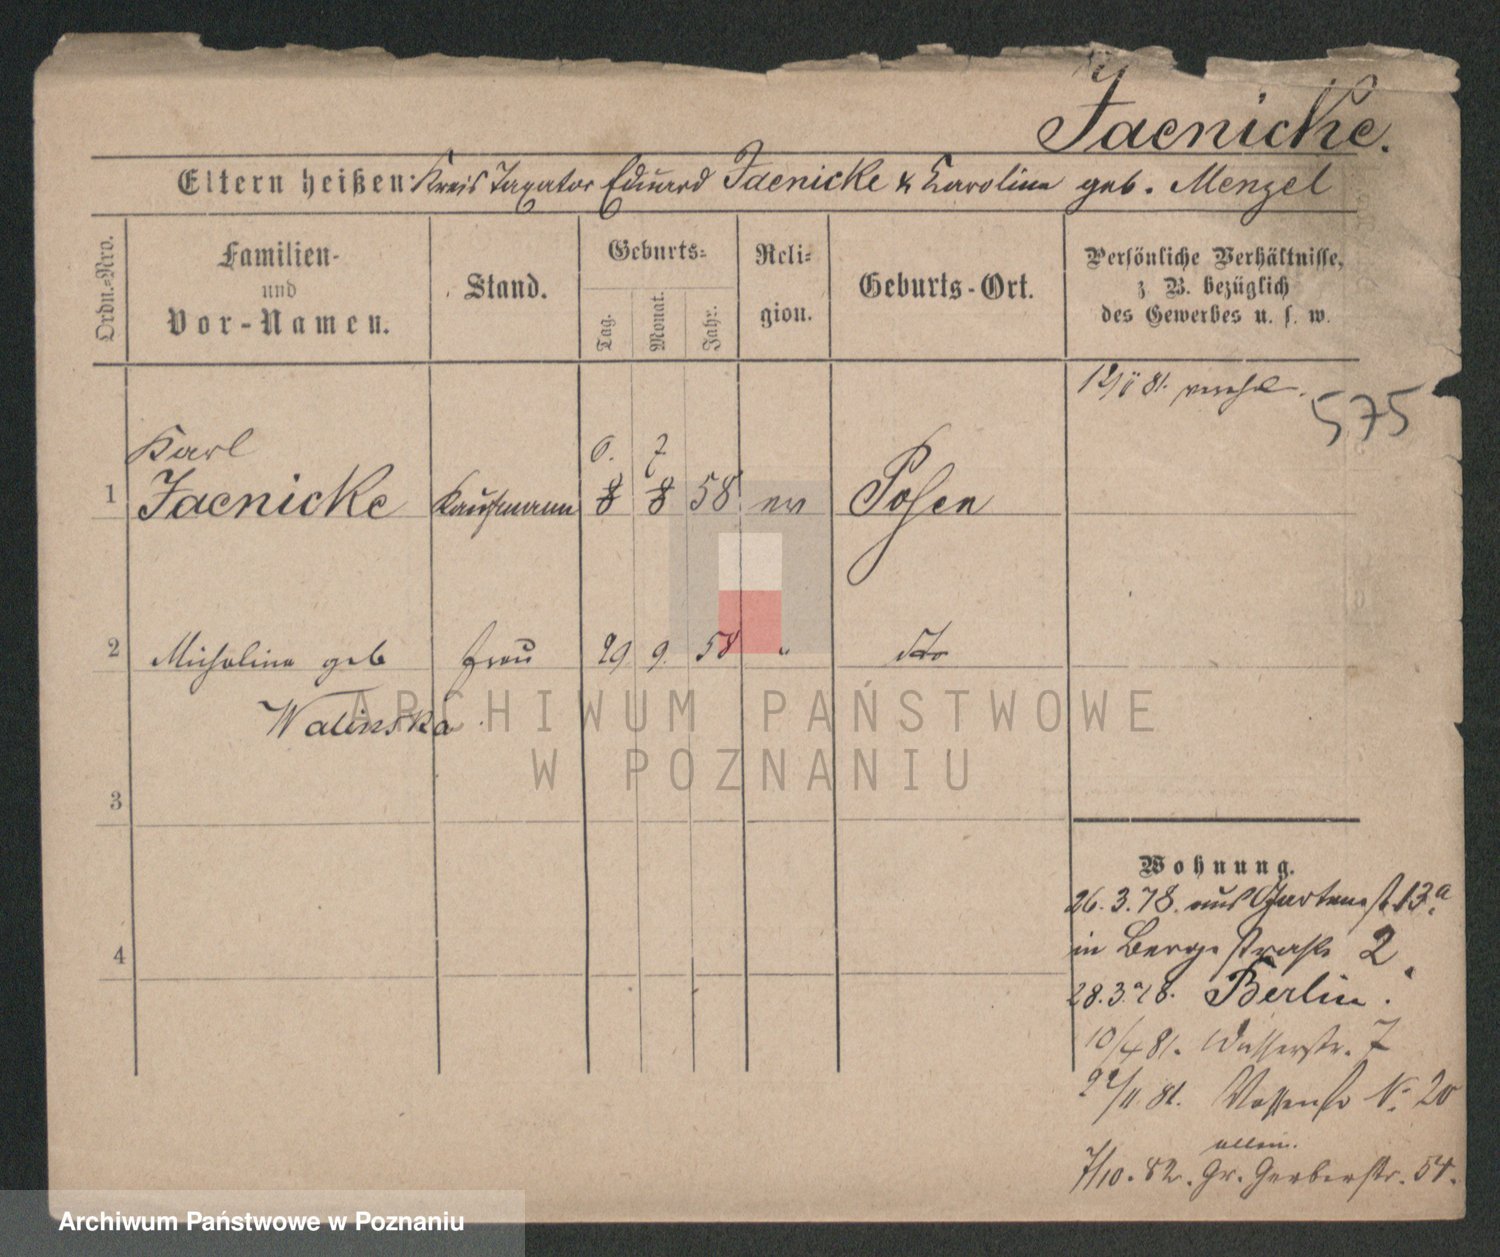 Jaenicke.
Eltern heißen: Kreis Taxator Eduard Jaenicke & Karoline geb. Menzel
Ordn.=Nro.
Familien-
und
Vor-Namen.
Stand.
Geburts=
Tag.
Monat.
Jahr.
Reli=
gion.
Geburts-Ort.
Persönliche Verhältnisse,
z. B. bezüglich
des Gewerbes u. s. w.
81. verehel.
575
Karl
1 Jaenicke Kaufmann 8 8 58 ev Posen
7
2 Micholine geb Frau 29 9. 58 " dto
Walinska
3
4
Wohnung.
26.3.78. aus Gartenst. 13a.
in Berge straße 2.
28.3.78. Berlin.
10/4 81. Wasserstr. 7
22/11. 81. No. 20
allein.
7/10. 82. Gr. Gerberstr. 54.
ARCHIWUM PAŃSTWOWE
W POZNANIU
Archiwum Państwowe w Poznaniu